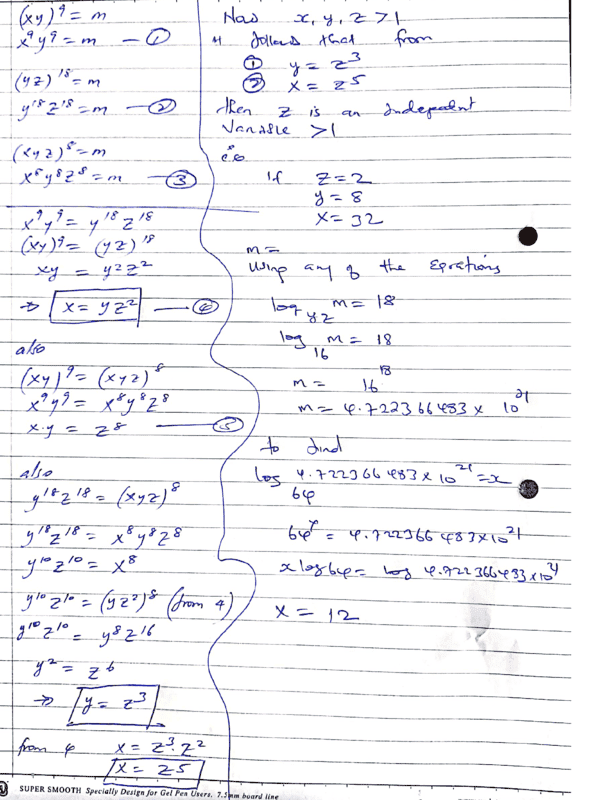 (xy)⁹ = m
x⁹y⁹ = m — ①
(yz)¹⁸ = m
y¹⁸z¹⁸ = m — ②
(xyz)⁸ = m
x⁸y⁸z⁸ = m — ③
x⁹y⁹ = y¹⁸z¹⁸
(xy)⁹ = (yz)¹⁸
xy = y²z²
⇒ x = yz² — ④
also
(xy)⁹ = (xyz)⁸
x⁹y⁹ = x⁸y⁸z⁸
x·y = z⁸ — ⑤
also
y¹⁸z¹⁸ = (xyz)⁸
y¹⁸z¹⁸ = x⁸y⁸z⁸
y¹⁰z¹⁰ = x⁸
y¹⁰z¹⁰ = (yz²)⁸ (from 4)
y¹⁰z¹⁰ = y⁸z¹⁶
y² = z⁶
⇒ y = z³
from 4 x = z³·z²
x = z⁵
Now x, y, z > 1
it follows that from
① y = z³
② x = z⁵
then z is an independent
variable > 1
ie
if z = 2
y = 8
x = 32
m =
Using any of the Equations
log_yz m = 18
log_16 m = 18
m = 16¹⁸
m = 4.722366483 x 10²¹
to find
log_64 4.722366483 x 10²¹ = x
64ˣ = 4.722366483 x 10²¹
x log 64 = log 4.722366483 x 10²¹
x = 12
SUPER SMOOTH Specially Design for Gel Pen Users. 7.5mm board line